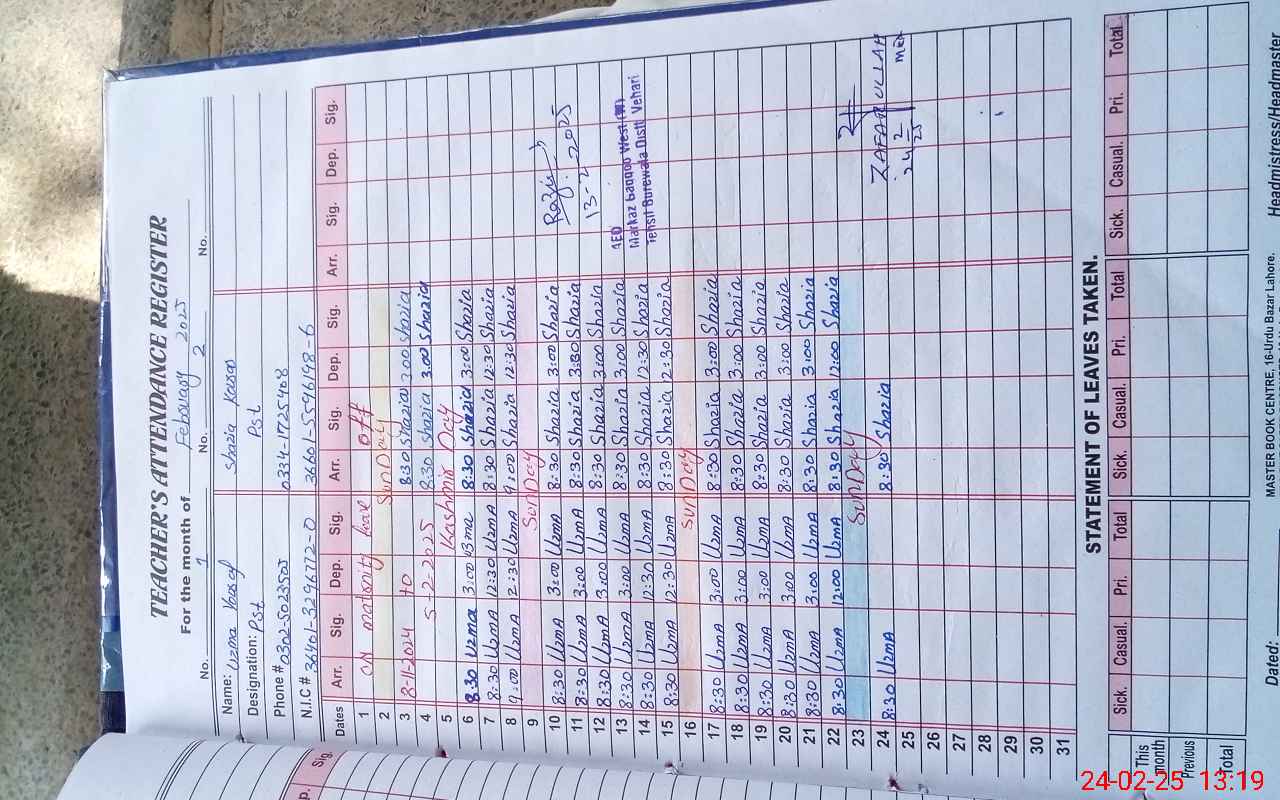 TEACHER'S ATTENDANCE REGISTER
For the month of Feburary 2025
No. 1 No. 2 No.
Name: Uzma Shazia Kausar
Designation: Pst Pst
Phone # 0302-5023505 0334-1725408
N.I.C # 36401-3296772-0 36601-5596198-6
Dates Arr. Sig. Dep. Sig. Arr. Sig. Dep. Sig. Arr. Sig. Dep. Sig.
1 ON matarnity leave off
2 SunDay
3 8-11-2024 to 8:30 Shazia 3:00 Shazia
4 5-2-2025 8:30 Shazia 3:00 Shazia
5 Kashmir Day
6 8:30 Uzma 3:00 Uzma 8:30 Shazia 3:00 Shazia
7 8:30 UzmA 12:30 UzmA 8:30 Shazia 12:30 Shazia
8 9:00 UzmA 2:30 UzmA 9:00 Shazia 12:30 Shazia
9 SunDay
10 8:30 UzmA 3:00 UzmA 8:30 Shazia 3:00 Shazia
11 8:30 UzmA 3:00 UzmA 8:30 Shazia 3:30 Shazia
12 8:30 UzmA 3:00 UzmA 8:30 Shazia 3:00 Shazia
13 8:30 UzmA 3:00 UzmA 8:30 Shazia 3:00 Shazia
14 8:30 UzmA 12:30 UzmA 8:30 Shazia 12:30 Shazia
15 8:30 UzmA 12:30 UzmA 8:30 Shazia 12:30 Shazia
16 SunDay
17 8:30 UzmA 3:00 UzmA 8:30 Shazia 3:00 Shazia
18 8:30 UzmA 3:00 UzmA 8:30 Shazia 3:00 Shazia
19 8:30 UzmA 3:00 UzmA 8:30 Shazia 3:00 Shazia
20 8:30 UzmA 3:00 UzmA 8:30 Shazia 3:00 Shazia
21 8:30 UzmA 3:00 UzmA 8:30 Shazia 3:00 Shazia
22 8:30 UzmA 12:00 UzmA 8:30 Shazia 12:00 Shazia
23 SunDay
24 8:30 UzmA 8:30 Shazia
25
26
27
28
29
30
31
13-2-2025
AEO
Markaz Gaggoo West (W)
Tehsil Burewala Distt Vehari
ZAFAR ULLAH
24 2/25 MEA
STATEMENT OF LEAVES TAKEN.
Sick. Casual. Pri. Total Sick. Casual. Pri. Total Sick. Casual. Pri. Total
This month
Previous
Total
MASTER BOOK CENTRE, 16-Urdu Bazar Lahore.
Dated: Headmistres/Headmaster
p. Sig.
24-02-25 13:19